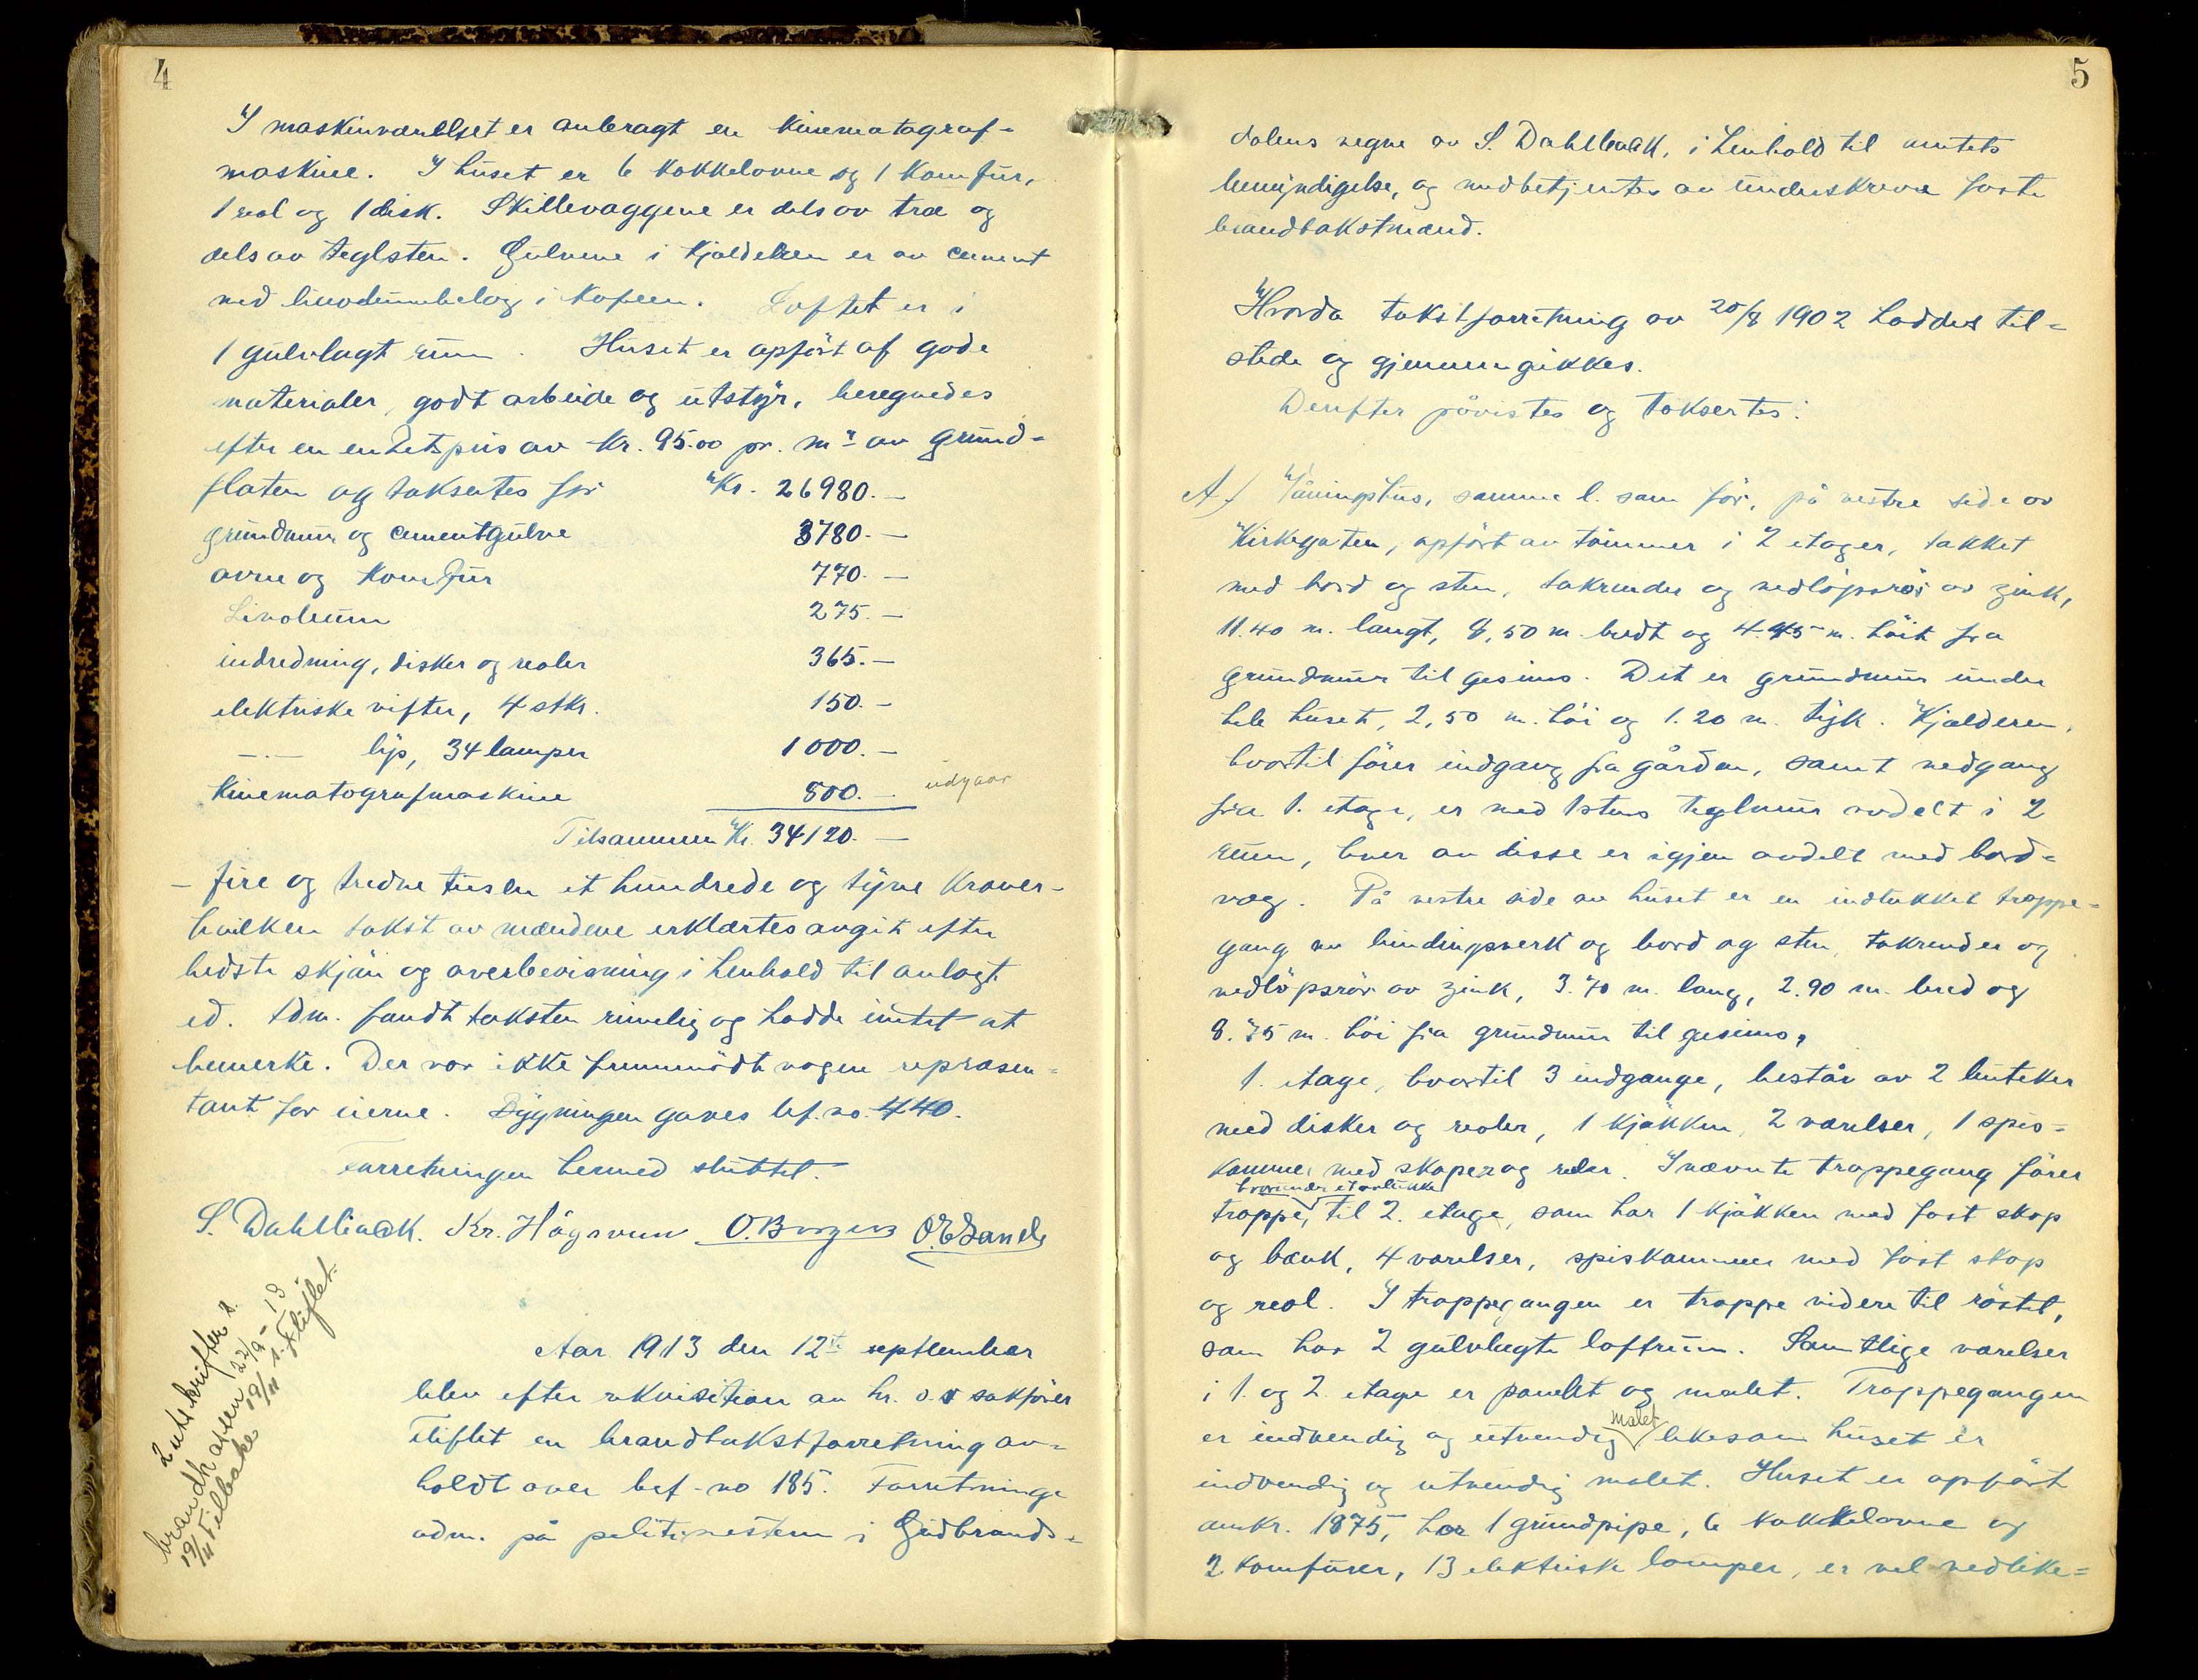 4
I maskinværelset er anbragt en kinematograf-
maskine. I huset er 6 kakkelovne og 1 komfur,
1 reol og 1 disk. Skillevæggene er dels av træ og
dels av teglsten. Gulvene i kjælderen er av cement
med linoleumbelæg i kafeen. Loftet er i
1 gulvlagt rum. Huset er opført af gode
materialer, godt arbeide og utstyr, beregnedes
efter en enhetspris av kr. 95.00 pr. m² av grund-
flaten og taksertes for Kr. 26980.—
grundmur og cementgulve 3780.—
ovne og komfur 770.—
Linoleum 275.—
indredning, disker og reoler 365.—
elektriske vifter, 4 stkr. 150.—
—.— lys, 34 lamper 1000.—
Kinematografmaskine 800.— udgaar
Tilsammen Kr. 34120.—
— fire og tredve tusen et hundrede og tyve kroner —
hvilken takst av mændene erklærtes avgit efter
bedste skjøn og overbevisning i henhold til avlagt
ed. Adm. fandt taksten rimelig og hadde intet at
bemerke. Der var ikke fremmødt nogen repræsen-
tant for eierne. Bygningen gaves bef. no. 440.
Forretningen hermed sluttet.
S. Dahlbäck. Kr. Högsveen O. Borgen O. E. Sande
2 utskrifter s.
brandkassen 22/9-13
19/11 tilbake 19/11 s. Fliflet
Aar 1913 den 12te september
blev efter rekvisition av hr. o.r sakfører
Fliflet en brandtakstforretning av-
holdt over bef-no 185. Forretninge
adm. på politimesteren i Gudbrands-
5
dalens vegne av S. Dahlbäck, i henhold til amtets
bemyndigelse, og medbetjentes av underskrevne faste
brandtakstmænd.
Hvorda takstforretning av 20/8 1902 haddes til-
stede og gjennemgikkes.
Derefter påvistes og taksertes:
A/ Våningshus, samme l. som før, på vestre side av
Kirkegaten, opført av tømmer i 2 etager, takket
med bord og sten, takrender og nedløpsrør av zink,
11.40 m. langt, 8,50 m. bredt og 4.45 m. høit fra
grundmur til gesims. Det er grundmur under
hele huset, 2,50 m. høi og 1.20 m. tyk. Kjælderen,
hvortil fører indgang fra gården, samt nedgang
fra 1. etage, er med 1 stens teglmur avdelt i 2
rum, hver av disse er igjen avdelt med bord-
væg. På vestre side av huset er en indtakket trappe-
gang av bindingsverk og bord og sten, takrender og
nedløpsrør av zink, 3.70 m. lang, 2.90 m. bred og
8.75 m. høi fra grundmur til gesims,
1. etage, hvortil 3 indgange, består av 2 butikker
med disker og reoler, 1 kjøkken, 2 værelser, 1 spis-
kammer med skaper og reoler. I nævnte trappegang fører
hvorunder et avlukke
trappe, til 2. etage, som har 1 kjøkken med fast skap
og bænk, 4 værelser, spiskammer med fast skap
og reol. I trappegangen er trappe videre til röstet,
som har 2 gulvlagte loftrum. Samtlige værelser
i 1. og 2. etage er panelet og malet. Trappegangen
malet
er indvendig og utvendig likesom huset er
indvendig og utvendig malet. Huset er opført
omkr. 1875, har 1 grundpipe, 6 kakkelovne og
2 komfurer, 13 elektriske lamper, er vel vedlike-